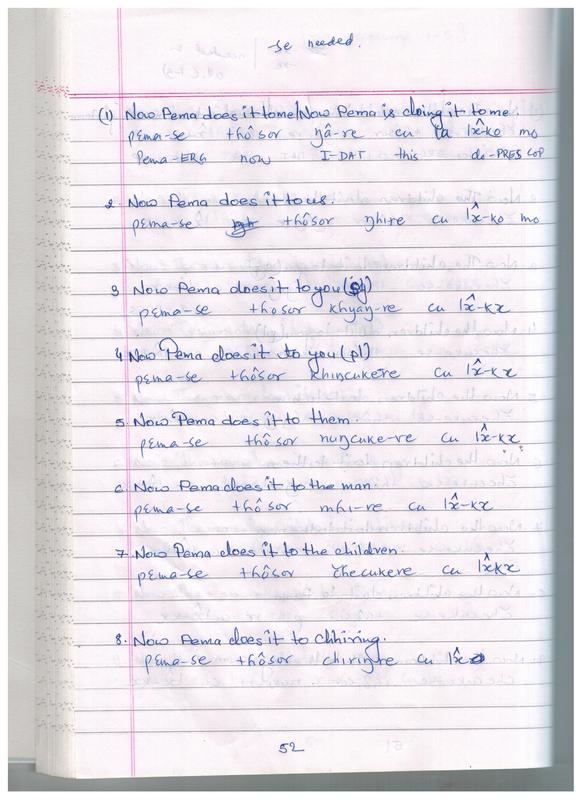 se needed.
(1) Now Pema does it to me/Now Pema is doing it to me.
pɛma-se thôsor ŋâ-re cu la lx̂-ko mo
Pema-ERG now I-DAT this do-PRES COP
2. Now Pema does it to us.
pɛma-se thôsor ŋhire cu lx̂-ko mo
3 Now Pema does it to you (sg)
pɛma-se thosor khyaŋ-re cu lx̂-kx
4 Now Pema does it to you (pl)
pɛma-se thôsor khincukere cu lx̂-kx
5. Now Pema does it to them.
pɛma-se thôsor nuŋcuke-re cu lx̂-kx
6. Now Pema does it to the man.
pɛma-se thôsor mhi-re cu lx̂-kx
7. Now Pema does it to the children.
pɛma-se thôsor cu lx̂kx
8. Now Pema does it to Chhiring.
pɛma-se thôsor chiriŋre cu lx̂
52